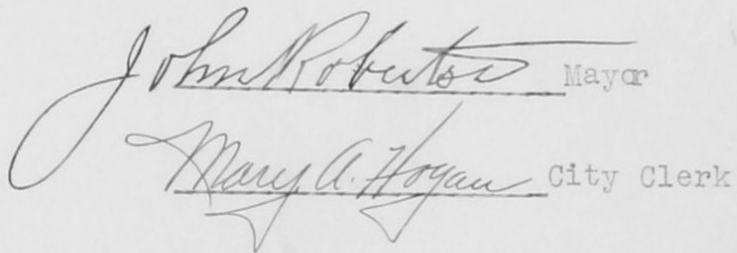 John Roberts Mayor
Mary A. Hogan City Clerk